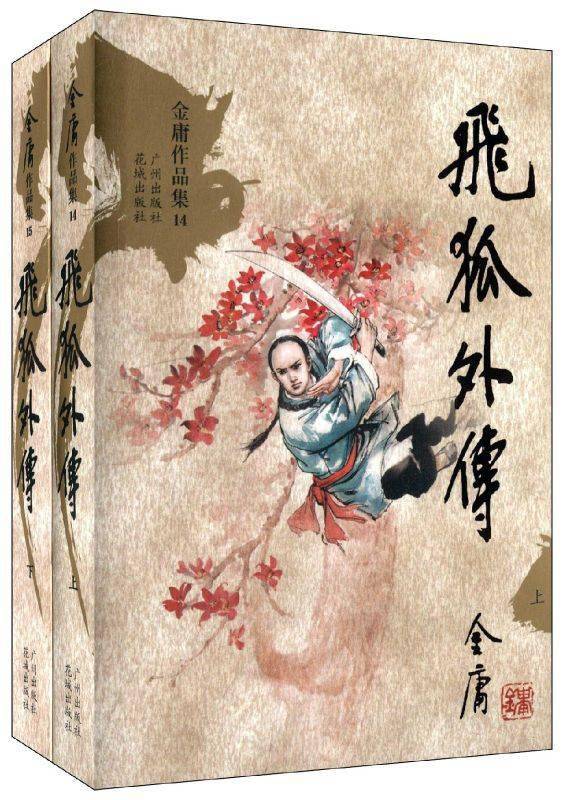 金庸作品集15
飛狐外傳
下
广州出版社
花城出版社
金庸作品集14
飛狐外傳
上
广州出版社
花城出版社
金庸作品集14
广州出版社
花城出版社
飛狐外傳
上
金庸